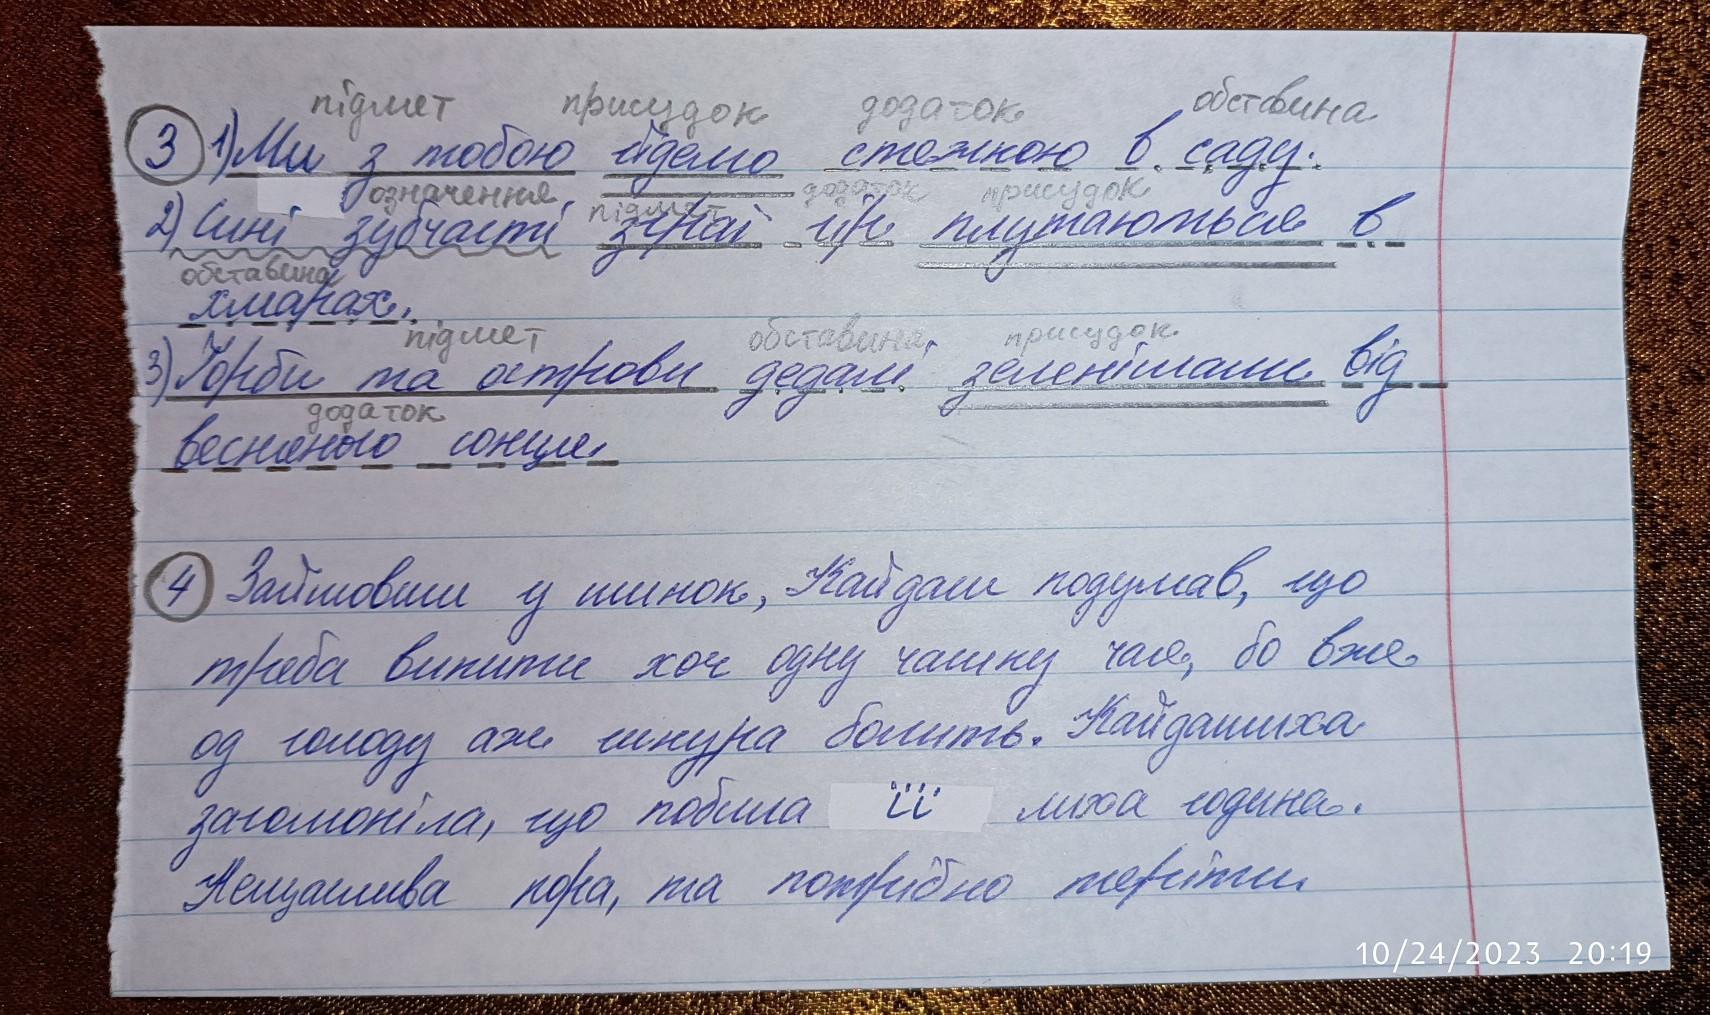 підмет присудок додаток обставина
3 1) Ми з тобою йдемо стежкою в саду.
означення підмет додаток присудок
2) Сині зубчасті зграї гір плутаються в
обставина
хмарах.
підмет обставина присудок
3) Горби та острови дедалі зеленішали від
додаток
весняного сонця.
4 Зайшовши у шинок, Кайдаш подумав, що
треба випити хоч одну чашку чая, бо вже
од голоду аж шкура болить. Кайдашиха
загомоніла, що побила її лиха година.
Нещаслива пора, та потрібно терпіти
10/24/2023 20:19